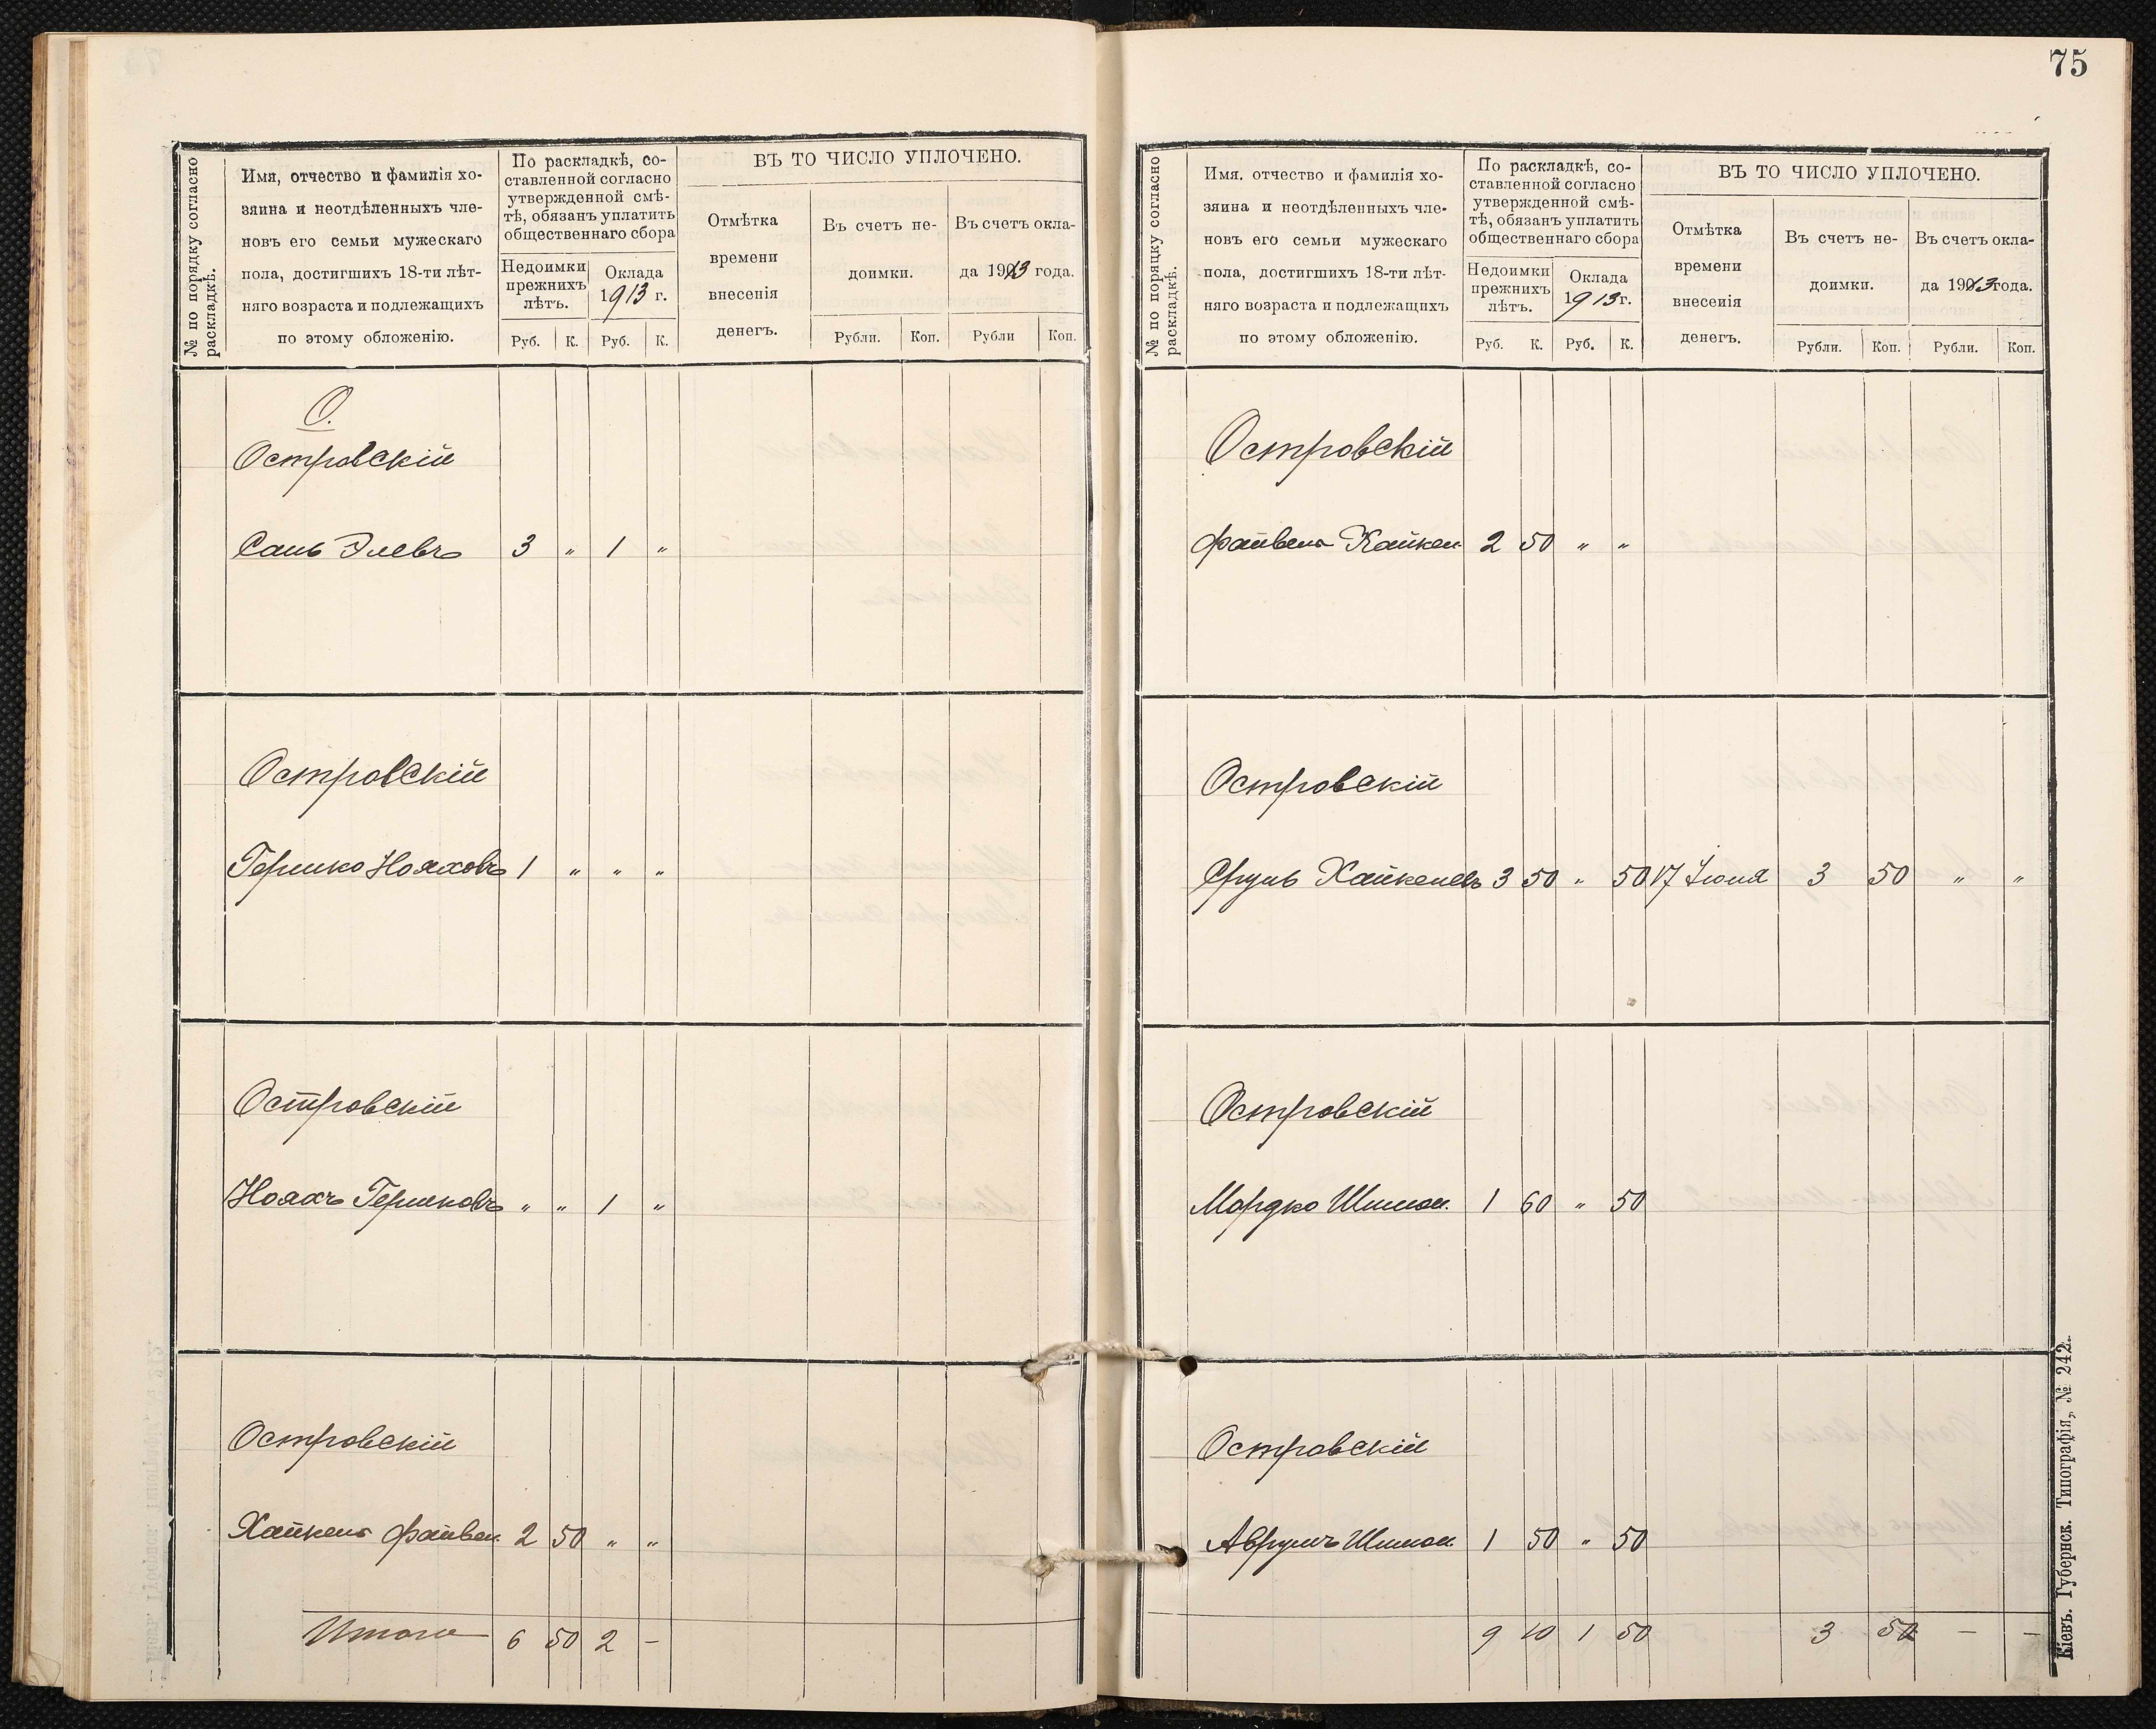 75
№ по порядку согласно
раскладкѣ.
Имя, отчество и фамилія хо-
зяина и неотдѣленныхъ чле-
новъ его семьи мужескаго
пола, достигшихъ 18-ти лѣт-
няго возраста и подлежащихъ
по этому обложенію.
По раскладкѣ, со-
ставленной согласно
утвержденной смѣ-
тѣ, обязанъ уплатить
общественнаго сбора
Недоимки
прежнихъ
лѣтъ.
Оклада
1913 г.
Руб. К. Руб. К.
ВЪ ТО ЧИСЛО УПЛОЧЕНО.
Отмѣтка
времени
внесенія
денегъ.
Въ счетъ не-
доимки.
Въ счетъ окла-
да 1913 года.
Рубли. Коп. Рубли Коп.
О.
Островскій
Сань Элевъ 3 „ 1 „
Островскій
Гершко Нояховъ 1 „ „ „
Островскій
Нояхъ Гершковъ „ „ 1 „
Островскій
Хайкель Файвел. 2 50 „ „
Итого 6 50 2 —
№ по порядку согласно
раскладкѣ.
Имя, отчество и фамилія хо-
зяина и неотдѣленныхъ чле-
новъ его семьи мужескаго
пола, достигшихъ 18-ти лѣт-
няго возраста и подлежащихъ
по этому обложенію.
По раскладкѣ, со-
ставленной согласно
утвержденной смѣ-
тѣ, обязанъ уплатить
общественнаго сбора
Недоимки
прежнихъ
лѣтъ.
Оклада
1913 г.
Руб. К. Руб. К.
ВЪ ТО ЧИСЛО УПЛОЧЕНО.
Отмѣтка
времени
внесенія
денегъ.
Въ счетъ не-
доимки.
Въ счетъ окла-
да 1913 года.
Рубли. Коп. Рубли. Коп.
Островскій
Файвель Хайкел. 2 50 „ „
Островскій
Сруль Хайкелевъ 3 50 „ 50 17 Іюня 3 50 „ „
Островскій
Мордко Шимон. 1 60 „ 50
Островскій
Аврумъ Шимон. 1 50 „ 50
9 10 1 50 3 50 — —
Кіевъ. Губернск. Типографія, № 242.